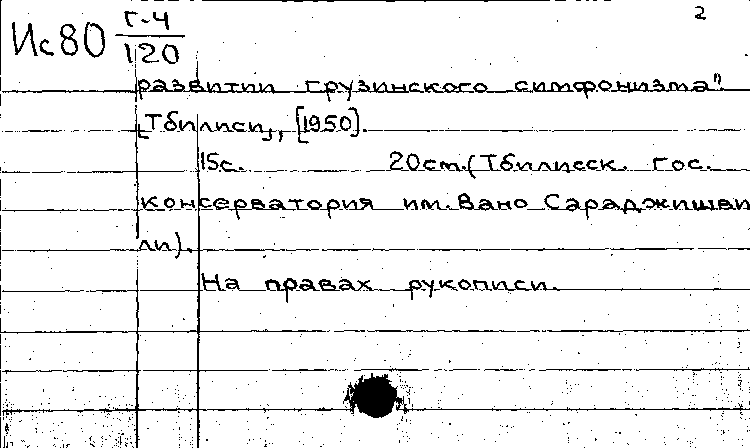 2
Ис80 Г-4/120
развитии грузинского симфонизма".
[Тбилиси], [1950].
15с. 20см.(Тбилисск. гос.
консерватория им. Вано Сараджишви
ли).
На правах рукописи.